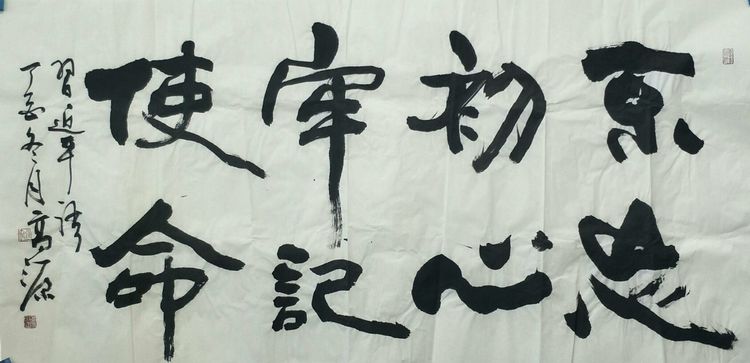 不忘
初心
牢記
使命
習近平語
丁酉冬月高源